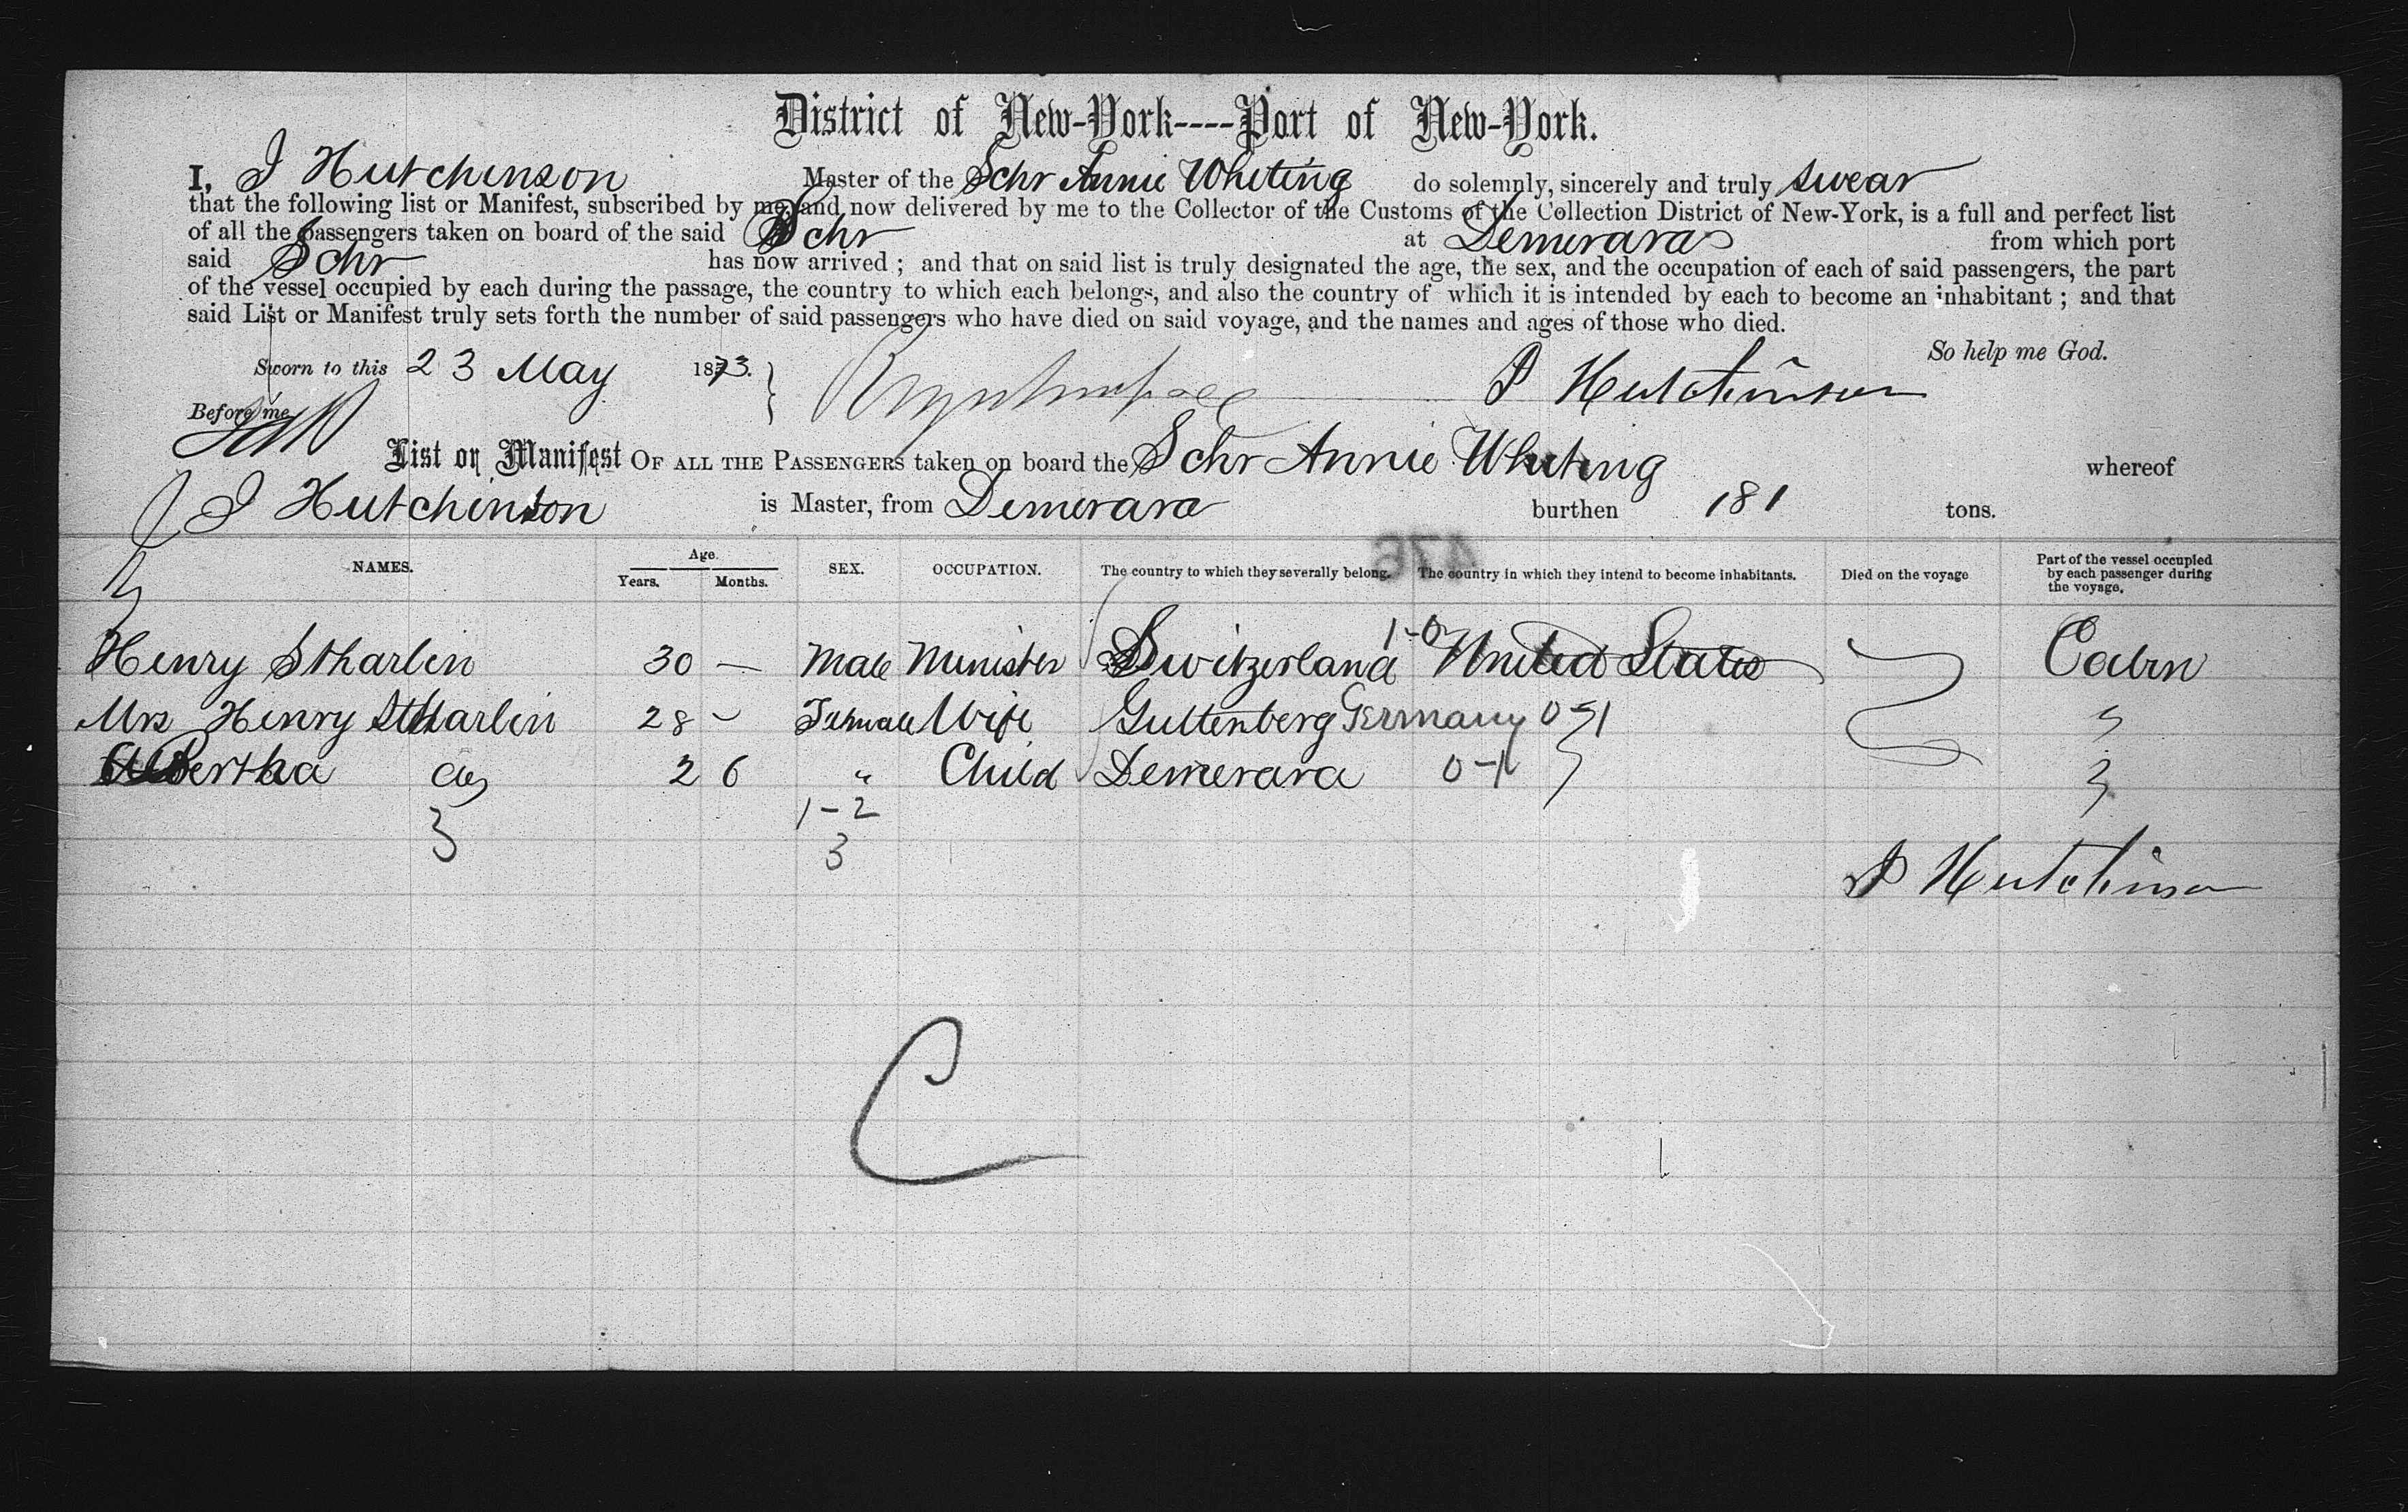 District of New-York----Port of New-York.
I, J Hutchinson Master of the Schr Annie Whiting do solemnly, sincerely and truly swear
that the following list or Manifest, subscribed by me, and now delivered by me to the Collector of the Customs of the Collection District of New-York, is a full and perfect list
of all the passengers taken on board of the said Schr at Demerara from which port
said Schr has now arrived ; and that on said list is truly designated the age, the sex, and the occupation of each of said passengers, the part
of the vessel occupied by each during the passage, the country to which each belongs, and also the country of which it is intended by each to become an inhabitant ; and that
said List or Manifest truly sets forth the number of said passengers who have died on said voyage, and the names and ages of those who died.
So help me God.
Sworn to this 23 May 1873. J Hutchinson
Before me
List or Manifest OF ALL THE PASSENGERS taken on board the Schr Annie Whiting whereof
J Hutchinson is Master, from Demerara burthen 181 tons.
476
NAMES. Age. Years. Months. SEX. OCCUPATION. The country to which they severally belong. The country in which they intend to become inhabitants. Died on the voyage Part of the vessel occupied by each passenger during the voyage.
Henry Stharlin 30 — Male Minister Switzerland 1-0 United States Cabin
Mrs Henry Stharlin 28 Female Wife Guttenberg Germany 0-1
Bertha do 2 6 " Child Demerara 0-1
1-2
3 3
J Hutchinson
C